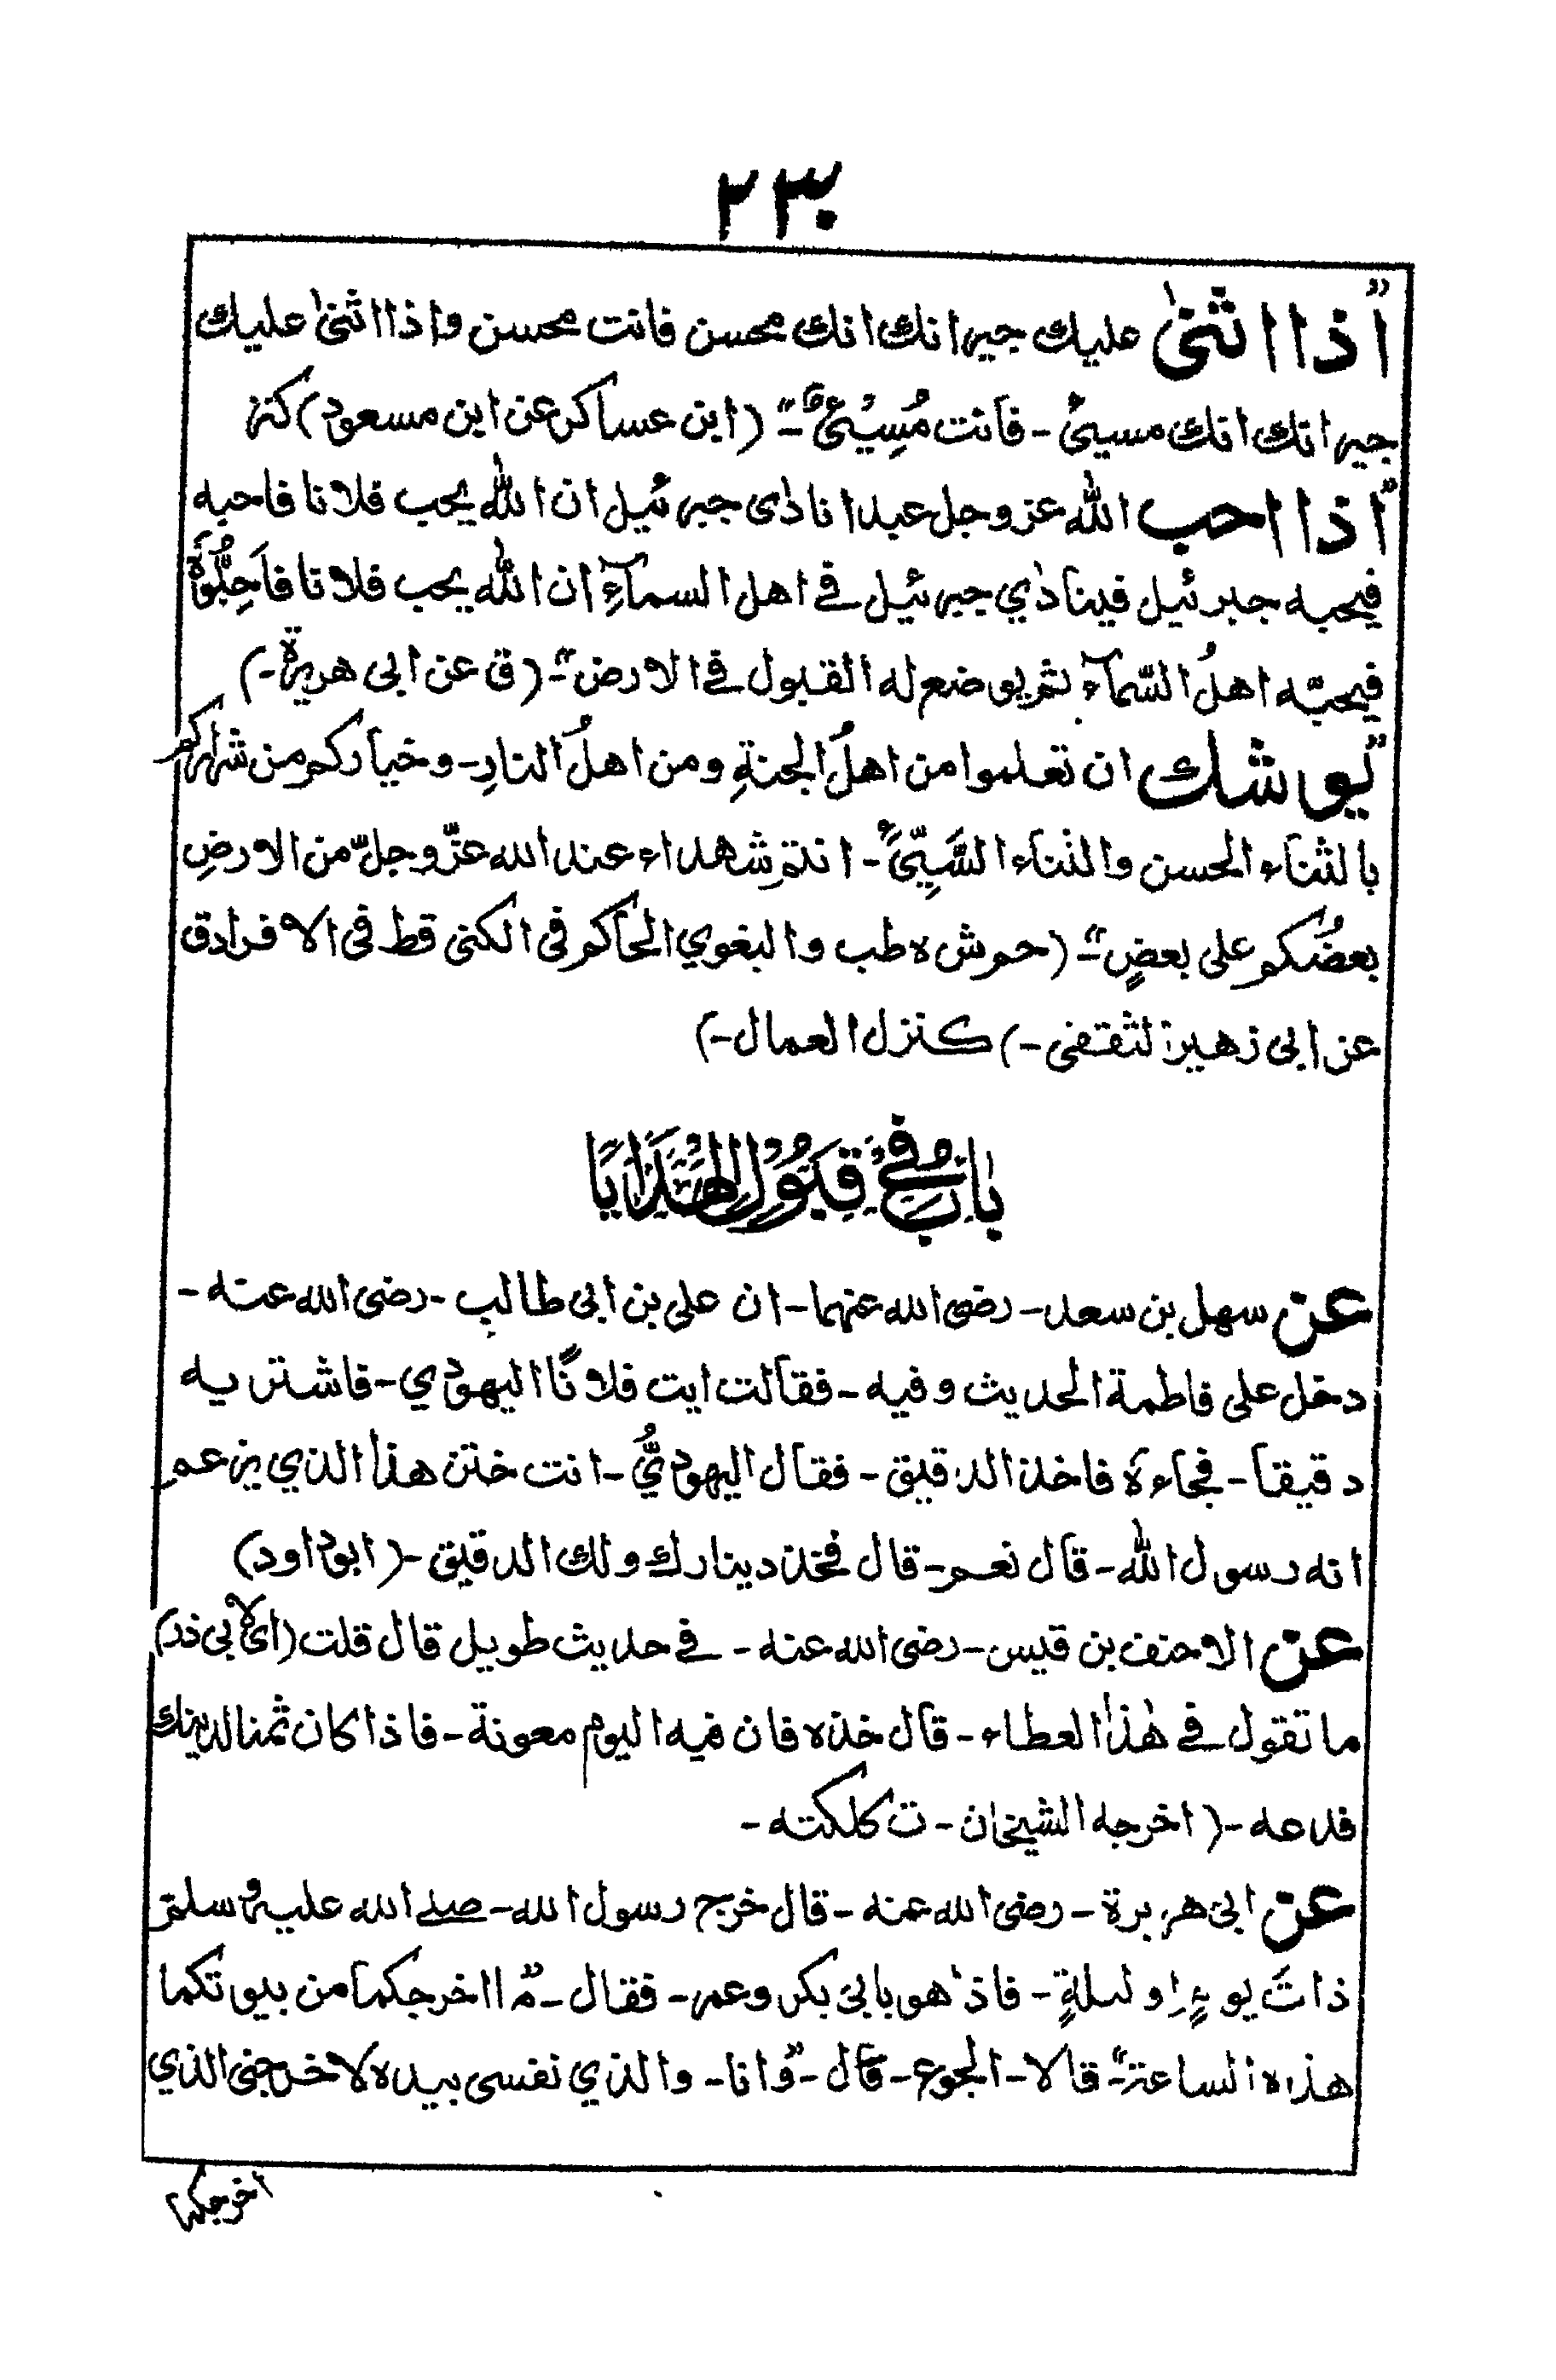 ٢٣٠
"اذا اثنیٰ عليك جيرانك انك محسن فانت محسن واذا اثنیٰ عليك
جيرانك انك مسیئ - فانت مُسِیْئٌ"- (ابن عساكر عن ابن مسعود) كنز
"اذا احب اللّٰه عز وجل عبدا نادٰى جبرئيل ان اللّٰه يحب فلانا فاحبه
فيحبه جبرئيل فينادٰي جبرئيل في اهل السمآءِ ان اللّٰه يحب فلانا فاَحِبُّوهُ
فيحبّه اهلُ السّمآء ثم يوضع له القبول في الارض"- (ق عن ابى هريرة-)
"يوشك ان تعلموا من اهلُ الجنةِ ومن اهلُ النارِ- وخياركم من شراركم
بالثناء الحسن والثناء السَّيِّیُٔ- انتم شهداء عند الله عزّ وجلّ من الارضِ
بعضُكم على بعضٍ"- (حم ش ه طب والبغوي الحاكم فى الكنى قط فى الافراد ق
عن ابى زهير الثقفى-) كنزل العمال-)
بَابٌ فِي قَبُوْلِ الْهَدَايَا
عن سهل بن سعد- رضى الله عنهما- ان على بن ابى طالب- رضى الله عنه-
دخل على فاطمة الحديث وفيه- فقالت ايت فلانًا اليهودي- فاشتر به
دقيقا- فجاءهٗ فاخذ الدقيق- فقال اليهوديُّ- انت ختن هذا الذي يزعم
انه رسول اللّٰه- قال نعم- قال فخذ دينارك ولك الدقيق-( ابوداود)
عن الاحنف بن قيس- رضى الله عنه- في حديث طويل قال قلت (اى لابى ذر)
ما تقول في هٰذا العطاء- قال خذه فان فيه اليوم معونة- فاذا كان ثمنا لدينك
فدعه-( اخرجه الشيخان- ت كلكته-
عن ابى هريرة- رضى الله عنه- قال خرج رسول الله- صلے الله عليه وسلم
ذاتَ يومٍ او ليلةٍ- فاذا هو بابى بكر وعمر- فقال-"ما اخرجكما من بيوتكما
هذه الساعة"- قالا- الجوع- قال-"وانا- والذي نفسى بيده لاخرجنى الذي
اخرجكما